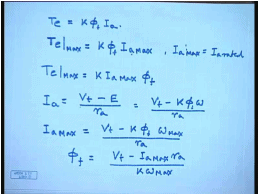 Te = K ϕt Ia.
Te|max = K ϕt Ia max , Ia max = Ia rated
Te|max = K Ia max ϕt
Ia = (Vt - E) / ra = (Vt - K ϕ ω) / ra
Ia max = (Vt - K ϕt ωmax) / ra
ϕt = (Vt - Ia max ra) / (K ωmax)